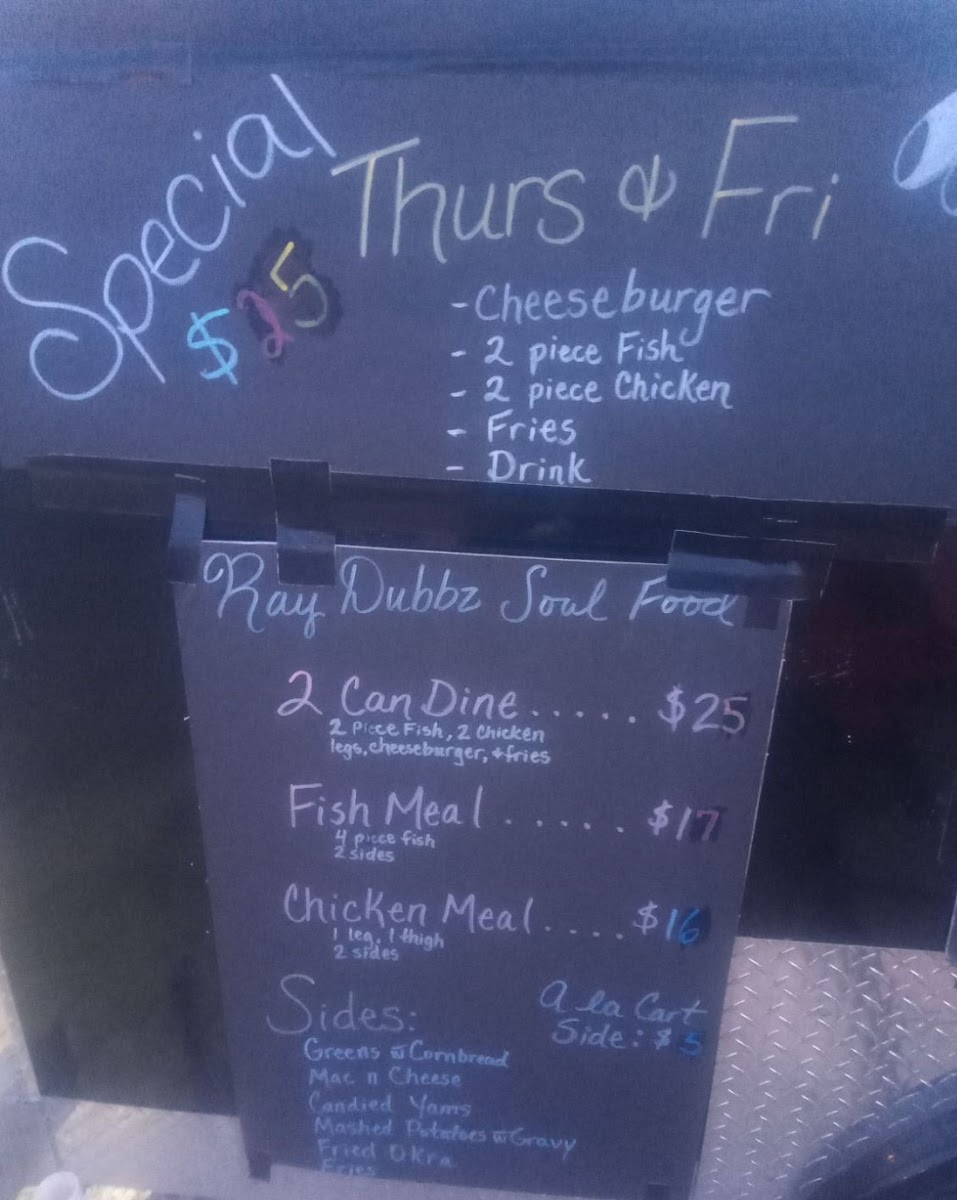 Special
$25
Thurs & Fri
- Cheeseburger
- 2 piece Fish
- 2 piece Chicken
- Fries
- Drink
Ray Dubbz Soul Food
2 Can Dine..... $25
2 Piece Fish, 2 Chicken
legs, cheeseburger, +fries
Fish Meal...... $17
4 piece fish
2 sides
Chicken Meal.... $16
1 leg, 1 thigh
2 sides
Sides:
A la Cart
Side: $5
Greens w Cornbread
Mac n Cheese
Candied Yams
Mashed Potatoes w Gravy
Fried Okra
Fries